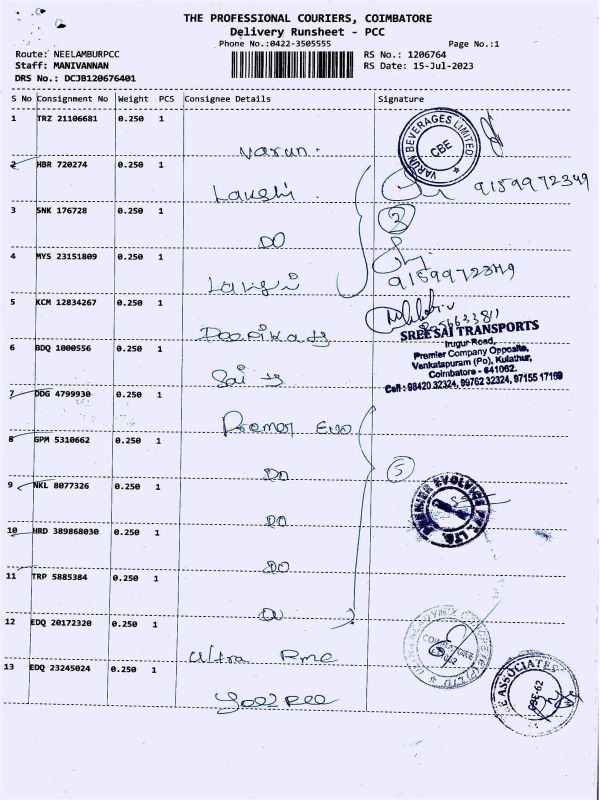 THE PROFESSIONAL COURIERS, COIMBATORE
Delivery Runsheet - PCC
Phone No.:0422-3505555
Page No.:1
Route: NEELAMBURPCC
RS No.: 1206764
Staff: MANIVANNAN
RS Date: 15-Jul-2023
DRS No.: DCJB120676401
S No Consignment No Weight PCS Consignee Details Signature
1 TRZ 21106681 0.250 1 Varun.
VARUN BEVERAGES LIMITED CBE
2 HBR 720274 0.250 1 9159972349
3 SNK 176728 0.250 1 DO 3
4 MYS 23151809 0.250 1 9159972349
5 KCM 12834267 0.250 1
6 BDQ 1000556 0.250 1 Sai
SREE SAI TRANSPORTS
Irugur Road,
Premier Company Opposite,
Venkatapuram (Po), Kulathur,
Coimbatore - 641062.
Cell : 98420 32324, 99762 32324, 97155 17169
7 DDG 4799930 0.250 1 Premer Evo
8 GPM 5310662 0.250 1 DO 5
9 NKL 8077326 0.250 1 DO
PREMIER EVOLVICS PVT. LTD.
10 HRD 389868030 0.250 1 DO
11 TRP 5885384 0.250 1 DO
12 EDQ 20172320 0.250 1 Ultra Rmc
13 EDQ 23245024 0.250 1
ASSOCIATES CBE-62